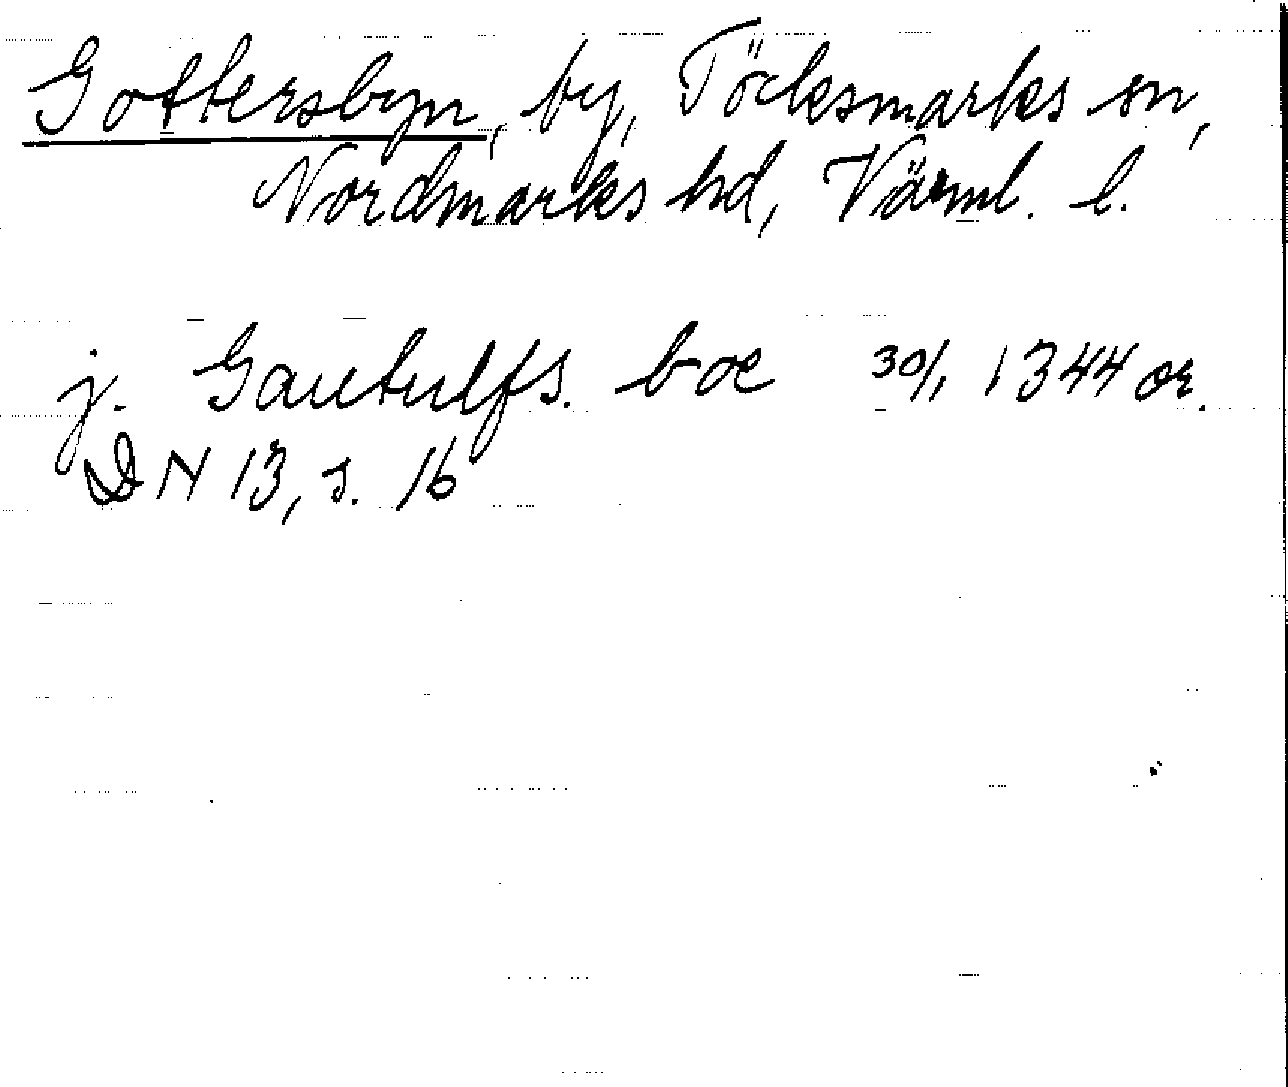 Gottersbyn, by, Töcksmarks sn,
Nordmarks hd, Värml. l.
j. Gautulfs. boe 30/1 1344 or.
DN 13, s. 16